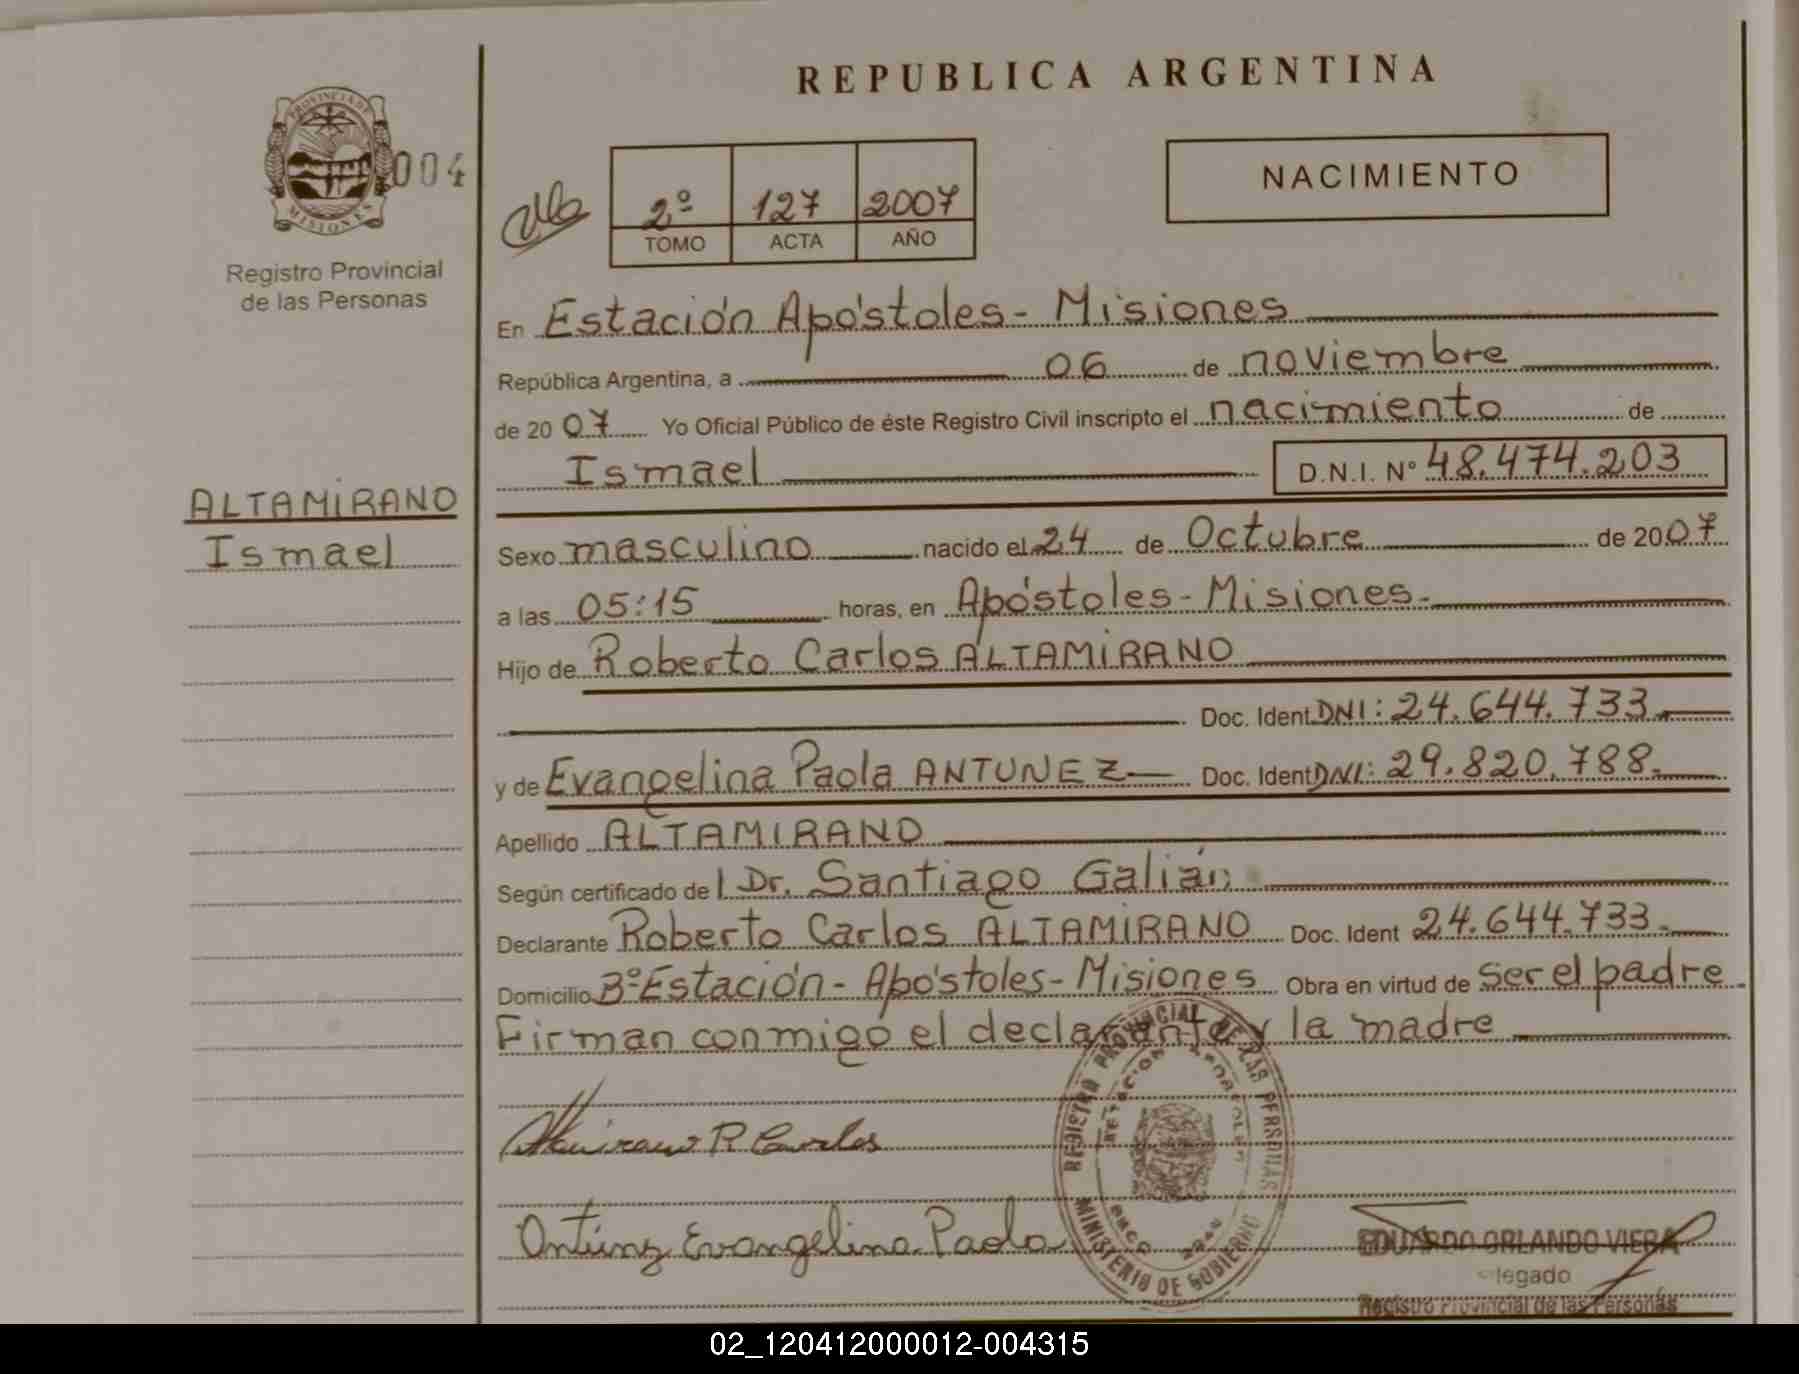 REPUBLICA ARGENTINA
PROVINCIA DE
MISIONES
004
Registro Provincial
de las Personas
2º 127 2007
TOMO ACTA AÑO
NACIMIENTO
En Estación Apóstoles - Misiones
República Argentina, a 06 de noviembre
de 2007 Yo Oficial Público de éste Registro Civil inscripto el nacimiento de
Ismael D.N.I. Nº 48.474.203
ALTAMIRANO
Ismael
Sexo masculino nacido el 24 de Octubre de 2007
a las 05:15 horas, en Apóstoles - Misiones.
Hijo de Roberto Carlos ALTAMIRANO
Doc. Ident DNI: 24.644.733.
y de Evangelina Paola ANTUNEZ Doc. Ident DNI: 29.820.788.
Apellido ALTAMIRANO
Según certificado del Dr. Santiago Galián
Declarante Roberto Carlos ALTAMIRANO Doc. Ident 24.644.733.
Domicilio Bº Estación - Apóstoles - Misiones Obra en virtud de ser el padre
Firman conmigo el declarante y la madre
REGISTRO PROVINCIAL DE LAS PERSONAS
MINISTERIO DE GOBIERNO
R. Carlos
Evangelina Paola
EDUARDO ORLANDO VIERA
legado
Registro Provincial de las Personas
02_120412000012-004315